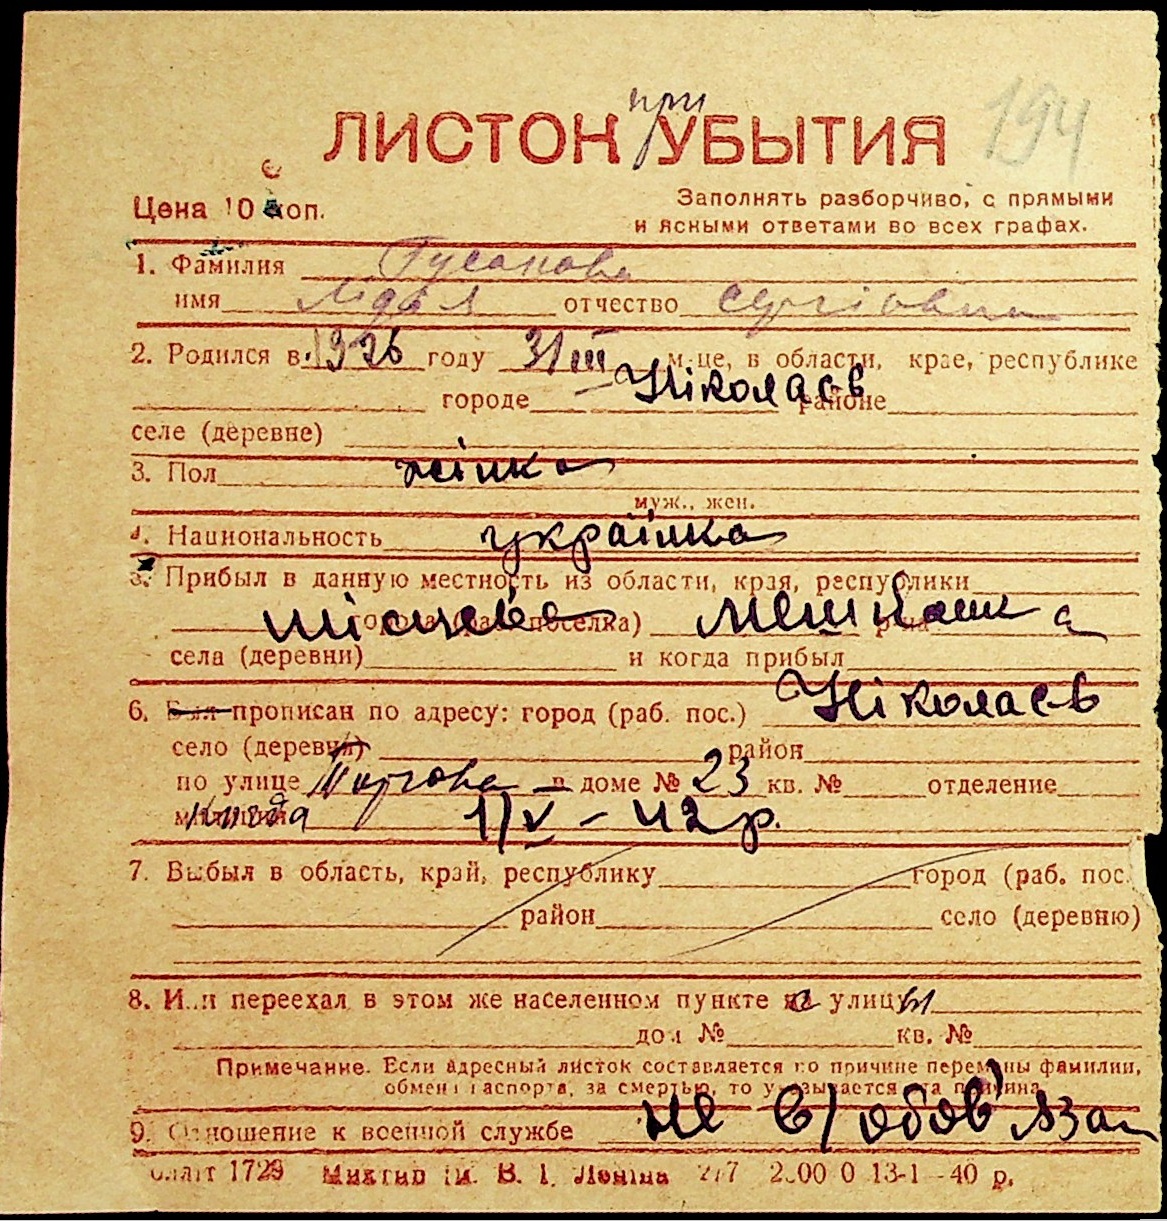 при
194
ЛИСТОК УБЫТИЯ
Цена 10 коп.
Заполнять разборчиво, с прямыми
и ясными ответами во всех графах.
1. Фамилия Гусакова
имя Лідія отчество Сергіовна
2. Родился в 1926 году 31 III м-це, в области, крае, республике
городе Ніколаєв районе
селе (деревне)
3. Пол жінка
муж., жен.
4. Национальность українка
5. Прибыл в данную местность из области, края, республики
місцева города (раб. поселка) мешканка р-на
села (деревни) и когда прибыл
6. Был прописан по адресу: город (раб. пос.) Ніколаєв
село (деревня) район
по улице в доме № 23 кв. № отделение
милиции когда 1/V – 42 р.
7. Выбыл в область, край, республику город (раб. пос.
район село (деревню)
8. Или переехал в этом же населенном пункте на улицу
дом № кв. №
Примечание. Если адресный листок составляется по причине перемены фамилии,
обмена паспорта, за смертью, то указывается эта причина
9. Отношение к военной службе не в/обов'язан
1729 ім. В. І. Леніна 13-1—40 р.